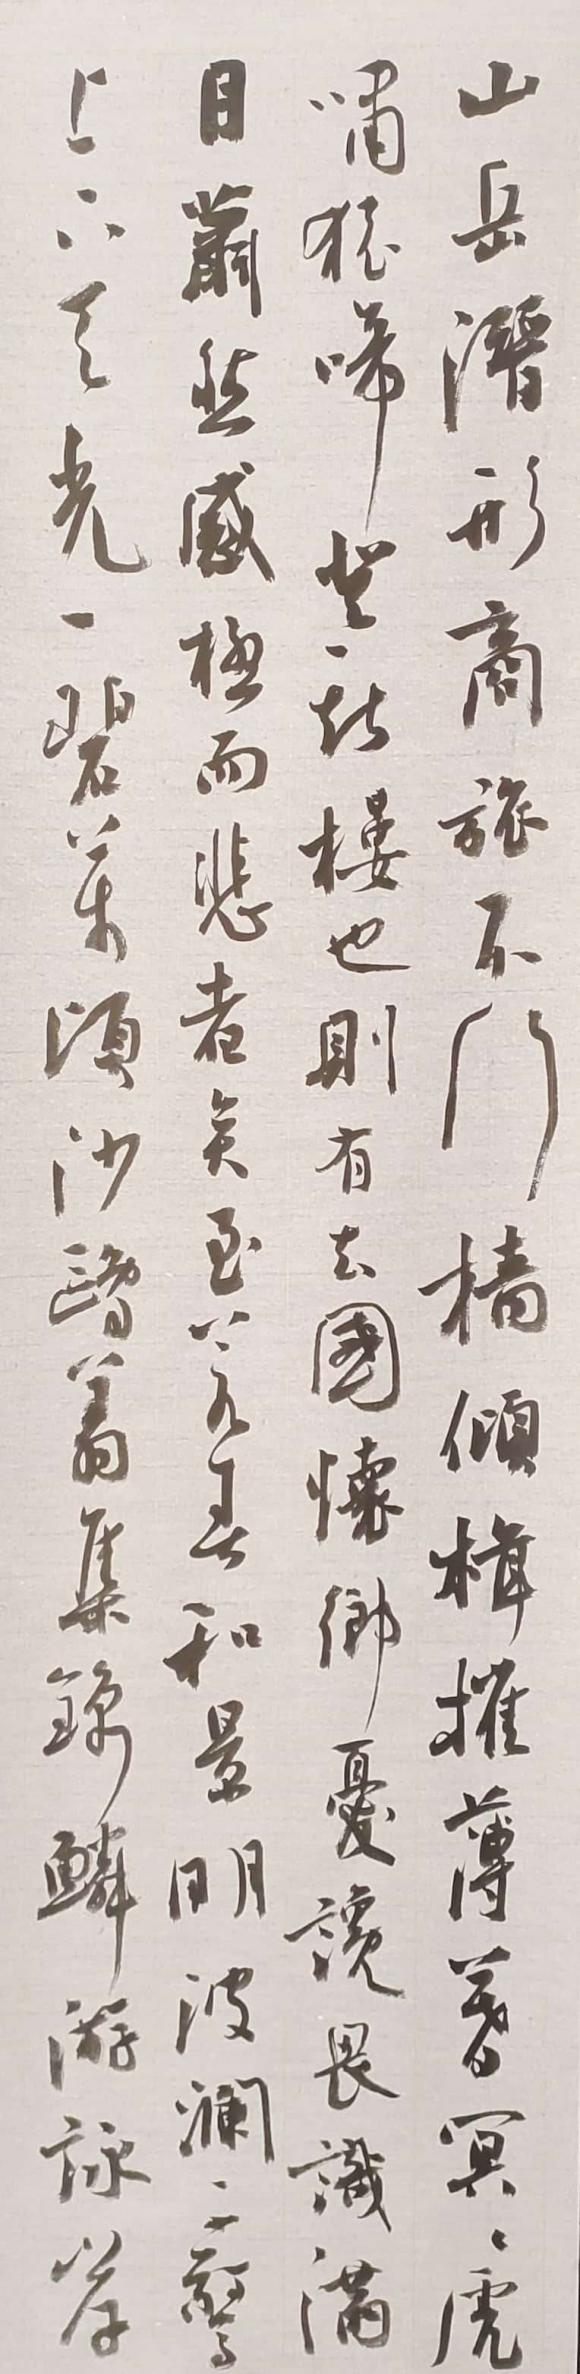 山岳潛形商旅不行檣傾楫摧薄暮冥〻虎
嘯猿啼登斯樓也則有去國懷鄉憂讒畏譏滿
目蕭然感極而悲者矣至若春和景明波瀾不驚
上下天光一碧萬頃沙鷗翔集錦鱗游泳岸